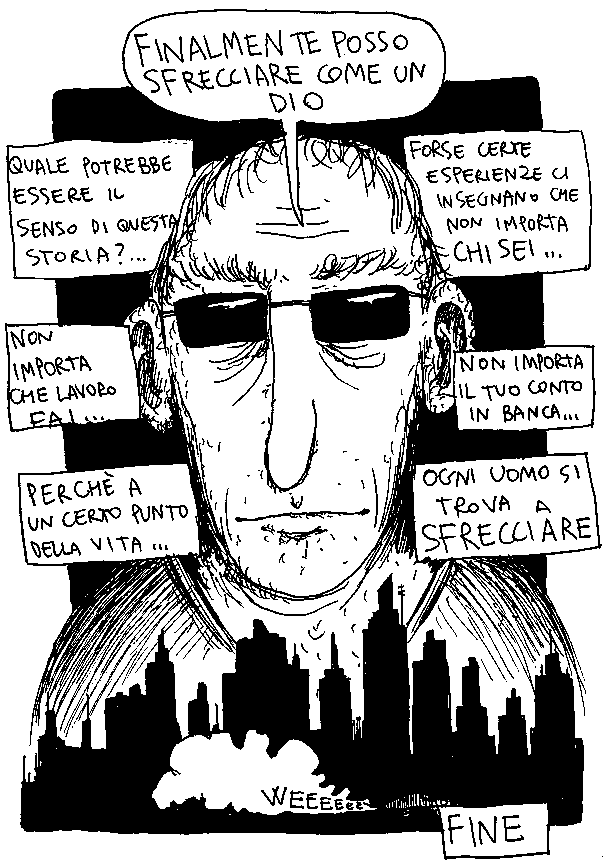 FINALMENTE POSSO
SFRECCIARE COME UN
DIO
QUALE POTREBBE
ESSERE IL
SENSO DI QUESTA
STORIA?...
FORSE CERTE
ESPERIENZE CI
INSEGNANO CHE
NON IMPORTA
CHI SEI...
NON
IMPORTA
CHE LAVORO
FAI...
NON IMPORTA
IL TUO CONTO
IN BANCA...
PERCHÈ A
UN CERTO PUNTO
DELLA VITA...
OGNI UOMO SI
TROVA A
SFRECCIARE
WEEEEeee
FINE